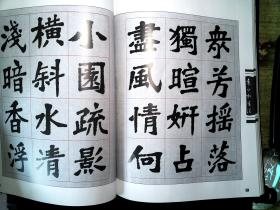 衆芳摇落
獨暄妍占
盡風情向
小園疏影
横斜水清
淺暗香浮